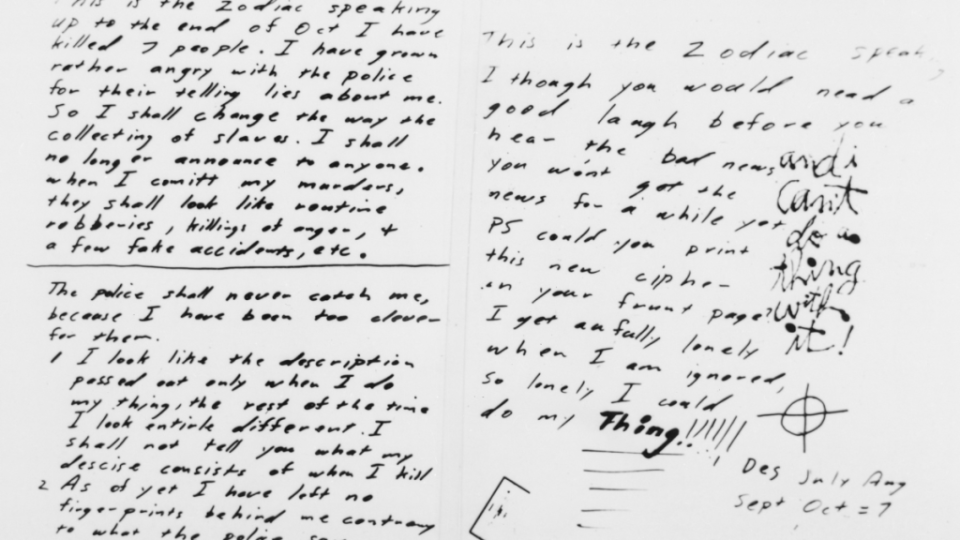 This is the Zodiac speaking
up to the end of Oct I have
killed 7 people. I have grown
rather angry with the police
for their telling lies about me.
So I shall change the way the
collecting of slaves. I shall
no longer announce to anyone.
when I comitt my murders,
they shall look like routine
robberies, killings of anger, +
a few fake accidents, etc.
The police shall never catch me,
because I have been too clever
for them.
1 I look like the description
passed out only when I do
my thing, the rest of the time
I look entirle different. I
shall not tell you what my
descise consists of when I kill
2 As of yet I have left no
fingerprints behind me contrary
to what the police
This is the Zodiac speak
I though you would nead a
good laugh before you
hear the bad news
you won't get the
news for a while yet
PS could you print
this new cipher
in your frunt page?
I get aufully lonely
when I am ignored,
so lonely I could
do my Thing..!!!!!!
and i
can't
do a
thing
with
it!
Des July Aug
Sept Oct = 7